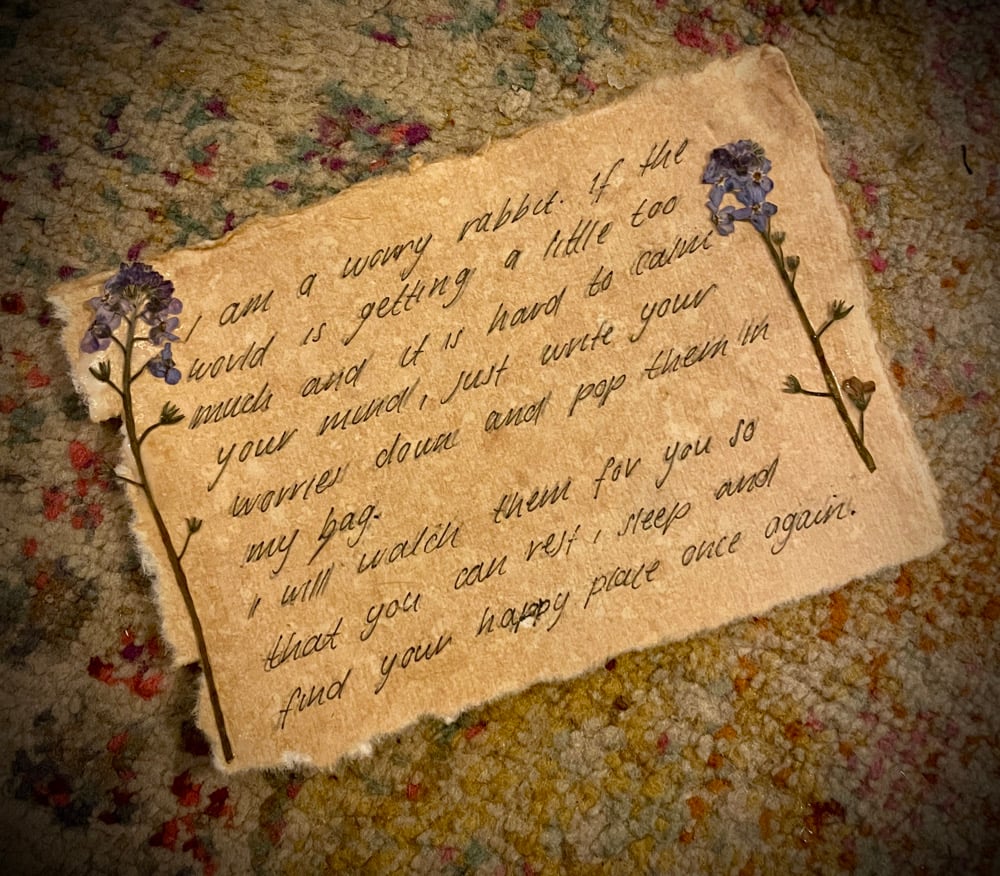 I am a worry rabbit. If the
world is getting a little too
much and it is hard to calm
your mind, just write your
worries down and pop them in
my bag.
I will watch them for you so
that you can rest, sleep and
find your happy place once again.